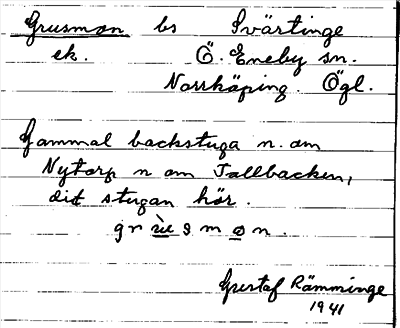 Grusmon bs Svärtinge
ek. Ö. Eneby sn.
Norrköping. Ögl.
Gammal backstuga n. om
Nytorp n om Tallbacken,
dit stugan hör.
grùsmon.
Gustaf Rämminge
1941